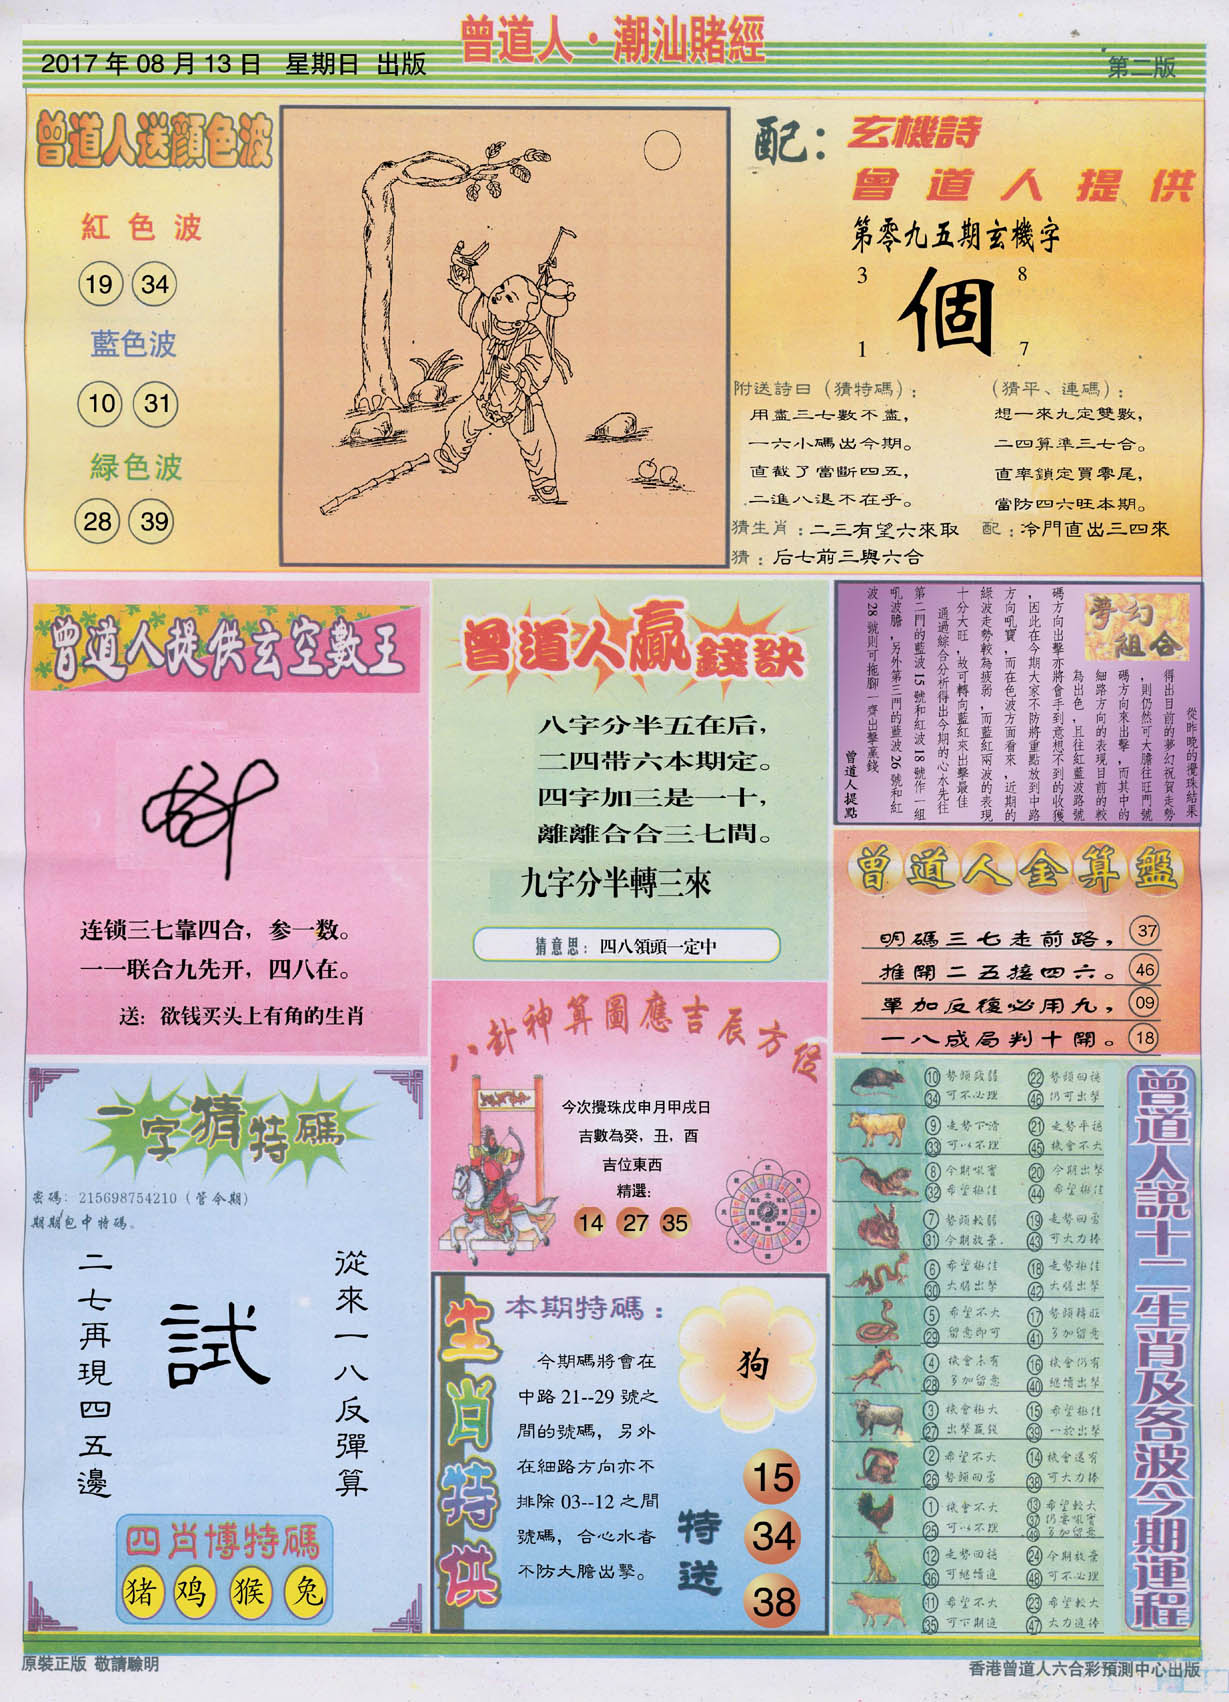 曾道人·潮汕賭經
2017年08月13日 星期日 出版
第二版
曾道人送顏色波
紅色波
19 34
藍色波
10 31
綠色波
28 39
配：玄機詩
曾道人提供
第零九五期玄機字
3 8
個
1 7
附送詩曰（猜特碼）：
用盡三七數不盡，
一六小碼出今期。
直截了當斷四五，
二進八退不在乎。
（猜平、連碼）：
想一來九定雙數，
二四算準三七合。
直率鎖定買零尾，
當防四六旺本期。
猜生肖：二三有望六來取 配：冷門直出三四來
猜：后七前三與六合
曾道人提供玄空數王
连锁三七靠四合，参一数。
一一联合九先开，四八在。
送：欲钱买头上有角的生肖
曾道人贏錢訣
八字分半五在后，
二四带六本期定。
四字加三是一十，
離離合合三七間。
九字分半轉三來
猜意思：四八領頭一定中
夢幻
組合
從昨晚的攪珠結果
得出目前的夢幻祝賀走勢
，則仍然可大膽往旺門號
碼方向來出擊，而其中的
細路方向的表現目前的較
為出色，且往紅藍波路號
碼方向出擊亦將會手到意想不到的收獲
，因此在今期大家不防將重點放到中路
方向吼寶，而在色波方面看來，近期的
綠波走勢較為疲弱，而藍紅兩波的表現
十分大旺，故可轉向藍紅來出擊最佳
通過綜合分析得出今期的心水先往
第二門的藍波15號和紅波18號作一組
吼波膽，另外第三門的藍波26號和紅
波28號則可拖腳一齊出擊贏錢
曾道人提點
曾道人金算盤
明碼三七走前路， 37
推開二五接四六。 46
單加反後必用九， 09
一八成局判十開。 18
八卦神算圖應吉辰方位
今次攪珠戊申月甲戌日
吉數為癸，丑，酉
吉位東西
精選：
14 27 35
一字猜特碼
密碼：215698754210（管今期）
期期包中特碼。
從來一八反彈算
試
二七再現四五邊
四肖博特碼
猪 鸡 猴 兔
生肖特供
本期特碼：
今期碼將會在
中路21--29號之
間的號碼，另外
在細路方向亦不
排除03--12之間
號碼，合心水者
不防大膽出擊。
狗
特送
15
34
38
曾道人説十二生肖及各波今期運程
10 勢頭疲弱 22 勢頭回穩
34 可不必理 46 仍可出擊
9 走勢下滑 21 走勢平穩
33 可以不理 45 機會不大
8 今期吼實 20 今期出擊
32 希望極佳 44 希望極佳
7 勢頭較弱 19 走勢回雲
31 今期放棄 43 可大力捧
6 希望極佳 18 走勢極佳
30 大膽出擊 42 大膽出擊
5 希望不大 17 勢頭轉旺
29 留意即可 41 多加留意
4 機會未有 16 機會仍有
28 多加留意 40 繼續出擊
3 機會極大 15 希望極佳
27 出擊贏錢 39 一於出擊
2 希望不大 14 機會還有
26 勢頭回雲 38 可大力捧
1 機會不大 13 希望較大
25 可以不理 37 仍要吼實
49 多加留意
12 走勢回穩 24 今期放棄
36 可繼續追 48 可不必理
11 希望不大 23 希望較大
35 可下期追 47 大力追捧
原裝正版 敬請驗明
香港曾道人六合彩預測中心出版